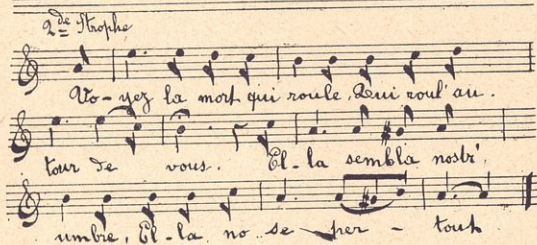 2de Strophe
Vo-yez la mort qui roule, Qui roul' au-
tour de vous. El-la sembla nostr'
umbre, El-la no se-per-tout